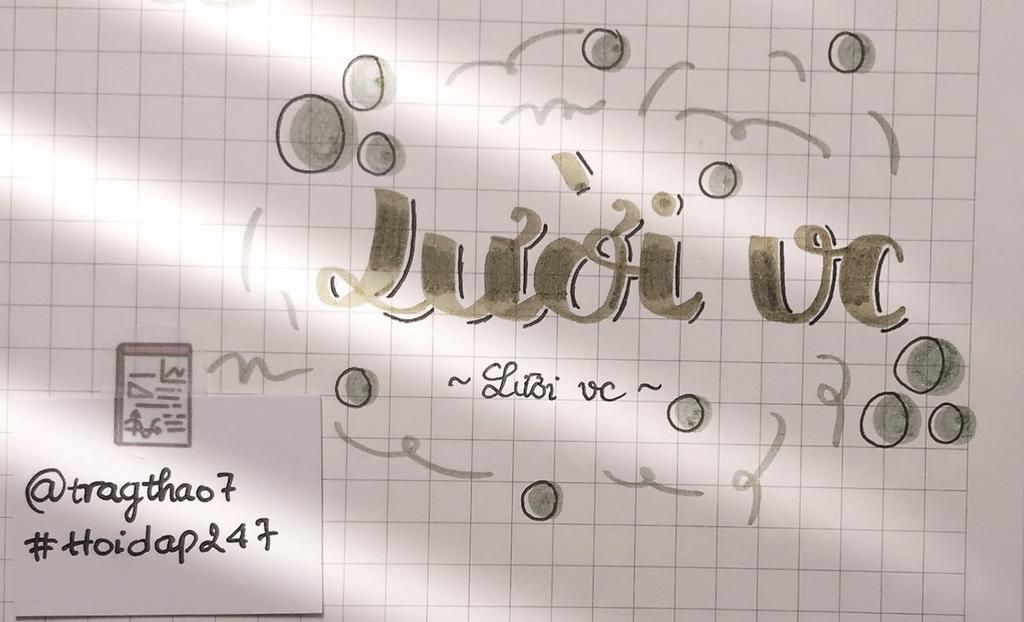 Lười vc
~ Lười vc ~
@tragthao7
#Hoidap247